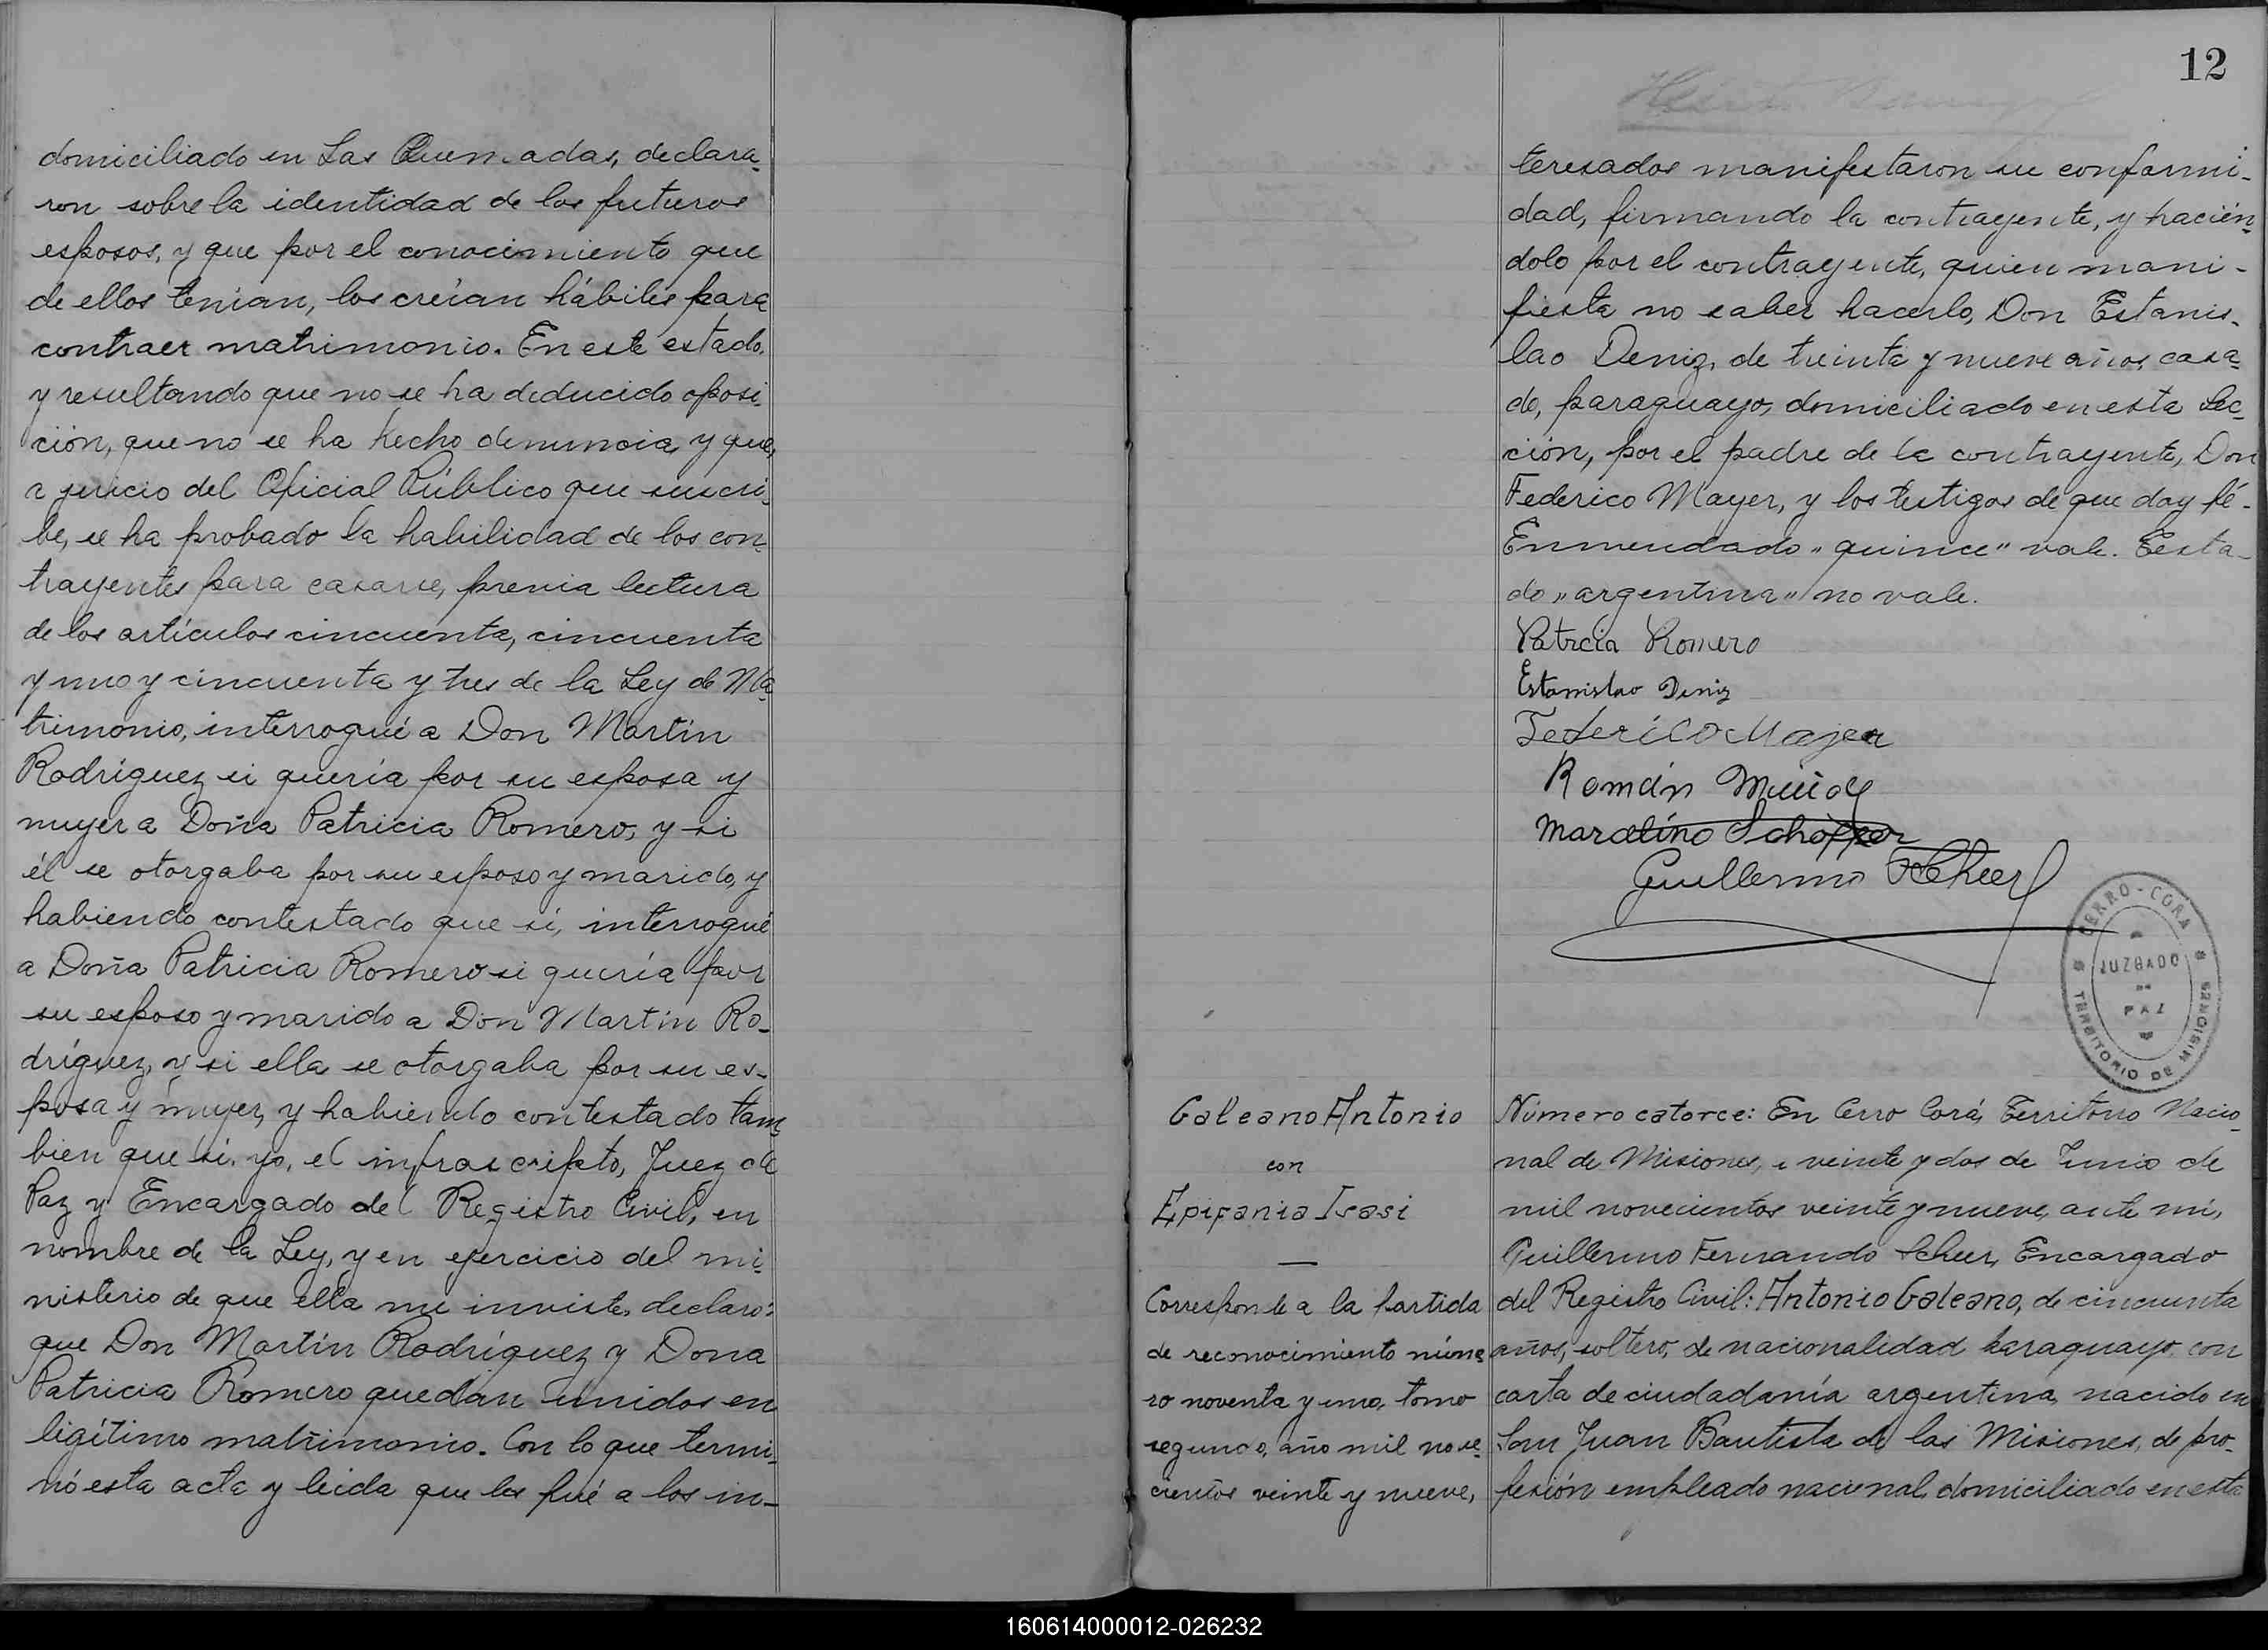 domiciliado en Las Quemadas, declara-
ron sobre la identidad de los futuros
esposos, y que por el conocimiento que
de ellos tenian, los creían hábiles para
contraer matrimonio. En este estado,
y resultando que no se ha deducido oposi-
ción, que no se ha hecho denuncia, y que,
a juicio del Oficial Público que suscri-
be, se ha probado la habilidad de los con-
trayentes para casarse, previa lectura
de los artículos cincuenta, cincuenta
y uno y cincuenta y tres de la Ley de Ma-
trimonio, interrogué a Don Martín
Rodríguez si quería por su esposa y
muyer a Doña Patricia Romero, y si
él se otorgaba por su esposo y marido, y
habiendo contestado que sí, interrogué
a Doña Patricia Romero si quería por
su esposo y marido a Don Martín Ro-
dríguez, y si ella se otorgaba por su es-
posa y muyer, y habiendo contestado tam-
bien que sí, yo, el infrascripto, Juez de
Paz y Encargado del Registro Civil, en
nombre de la Ley, y en ejercicio del mi-
nisterio de que ella me inviste, declaro:
que Don Martín Rodríguez y Dona
Patricia Romero quedan unidos en
legítimo matrimonio. Con lo que termi-
nó esta acta y leida que les fué a los in-
12
teresados manifestaron su conformi-
dad, firmando la contrayente, y hacién-
dolo por el contrayente, quien mani-
fiesta no saber hacerlo, Don Estanis-
lao Deniz, de treinta y nueve años, casa-
do, paraguayo, domiciliado en esta Sec-
ción, por el padre de la contrayente, Don
Federico Mayer, y los testigos de que doy fé.-
Enmendado "quince" vale. Testa-
do "argentina" no vale.
Patrcia Romero
Estanislao Deniz
Federico Majer
Román
Marcelino Schöffer
Guillermo F Scheer
CERRO-CORA
JUZGADO
DE
PAZ
TERRITORIO DE MISIONES
Galeano Antonio
con
Epifania Isasi
Corresponde a la partida
de reconocimiento núme-
ro noventa y uno, tomo
segundo, año mil nove-
cientos veinte y nueve,
Número catorce: En Cerro Corá, Territorio Nacio-
nal de Misiones, a veinte y dos de Junio de
mil novecientos veinte y nueve, ante mí,
Guillermo Fernando Scheer, Encargado
del Registro Civil: Antonio Galeano, de cincuenta
años, soltero, de nacionalidad paraguayo, con
carta de ciudadanía argentina, nacido en
San Juan Bautista de las Misiones, de pro-
fesión empleado nacional, domiciliado en esta
160614000012-026232